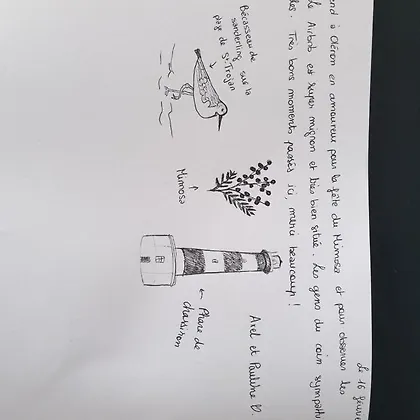 Le 16 févr
end à Oléron en amoureux pour la fête du Mimosa et pour observer les
Airbnb est super mignon et très bien situé. Les gens du coin sympath
Très bons moments passés ici, merci beaucoup !
Axel et Pauline
Bécasseau de
sanderling sur la
plage de St Trojan
Mimosa
Phare de
Chassiron